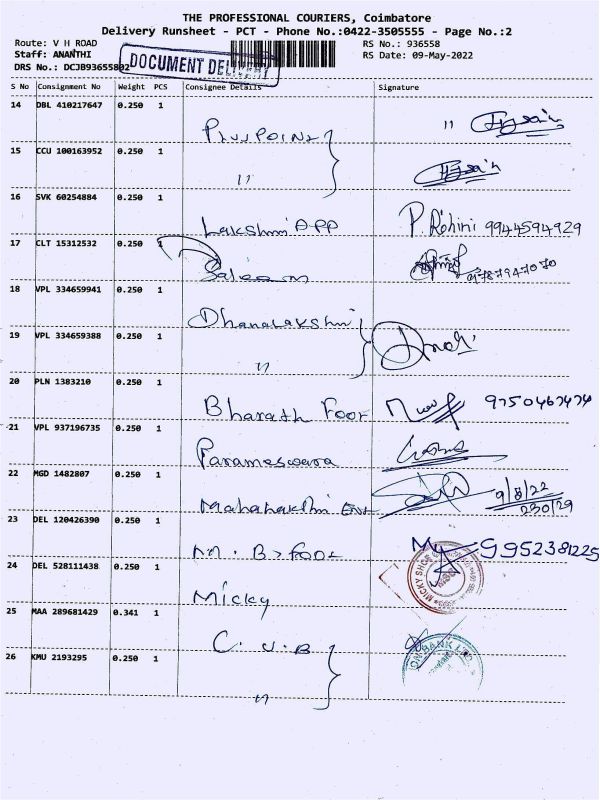 THE PROFESSIONAL COURIERS, Coimbatore
Delivery Runsheet - PCT - Phone No.:0422-3505555 - Page No.:2
Route: V H ROAD RS No.: 936558
Staff: ANANTHI RS Date: 09-May-2022
DRS No.: DCJB93655802
DOCUMENT DELIVERY
S No Consignment No Weight PCS Consignee Details Signature
14 DBL 410217647 0.250 1
Pluspoint "
15 CCU 100163952 0.250 1
"
16 SVK 60254884 0.250 1
Lakshmi APP P. Rohini 9944594929
17 CLT 15312532 0.250 1
Saleem 9787947070
18 VPL 334659941 0.250 1
Dhanalakshmi
19 VPL 334659388 0.250 1
"
20 PLN 1383210 0.250 1
Bharath Foot 9750467474
21 VPL 937196735 0.250 1
Parameswara
22 MGD 1482807 0.250 1
23 DEL 120426390 0.250 1
9952381225
24 DEL 528111438 0.250 1
Micky MICKY SHOE
25 MAA 289681429 0.341 1
C.U.B
26 KMU 2193295 0.250 1
"